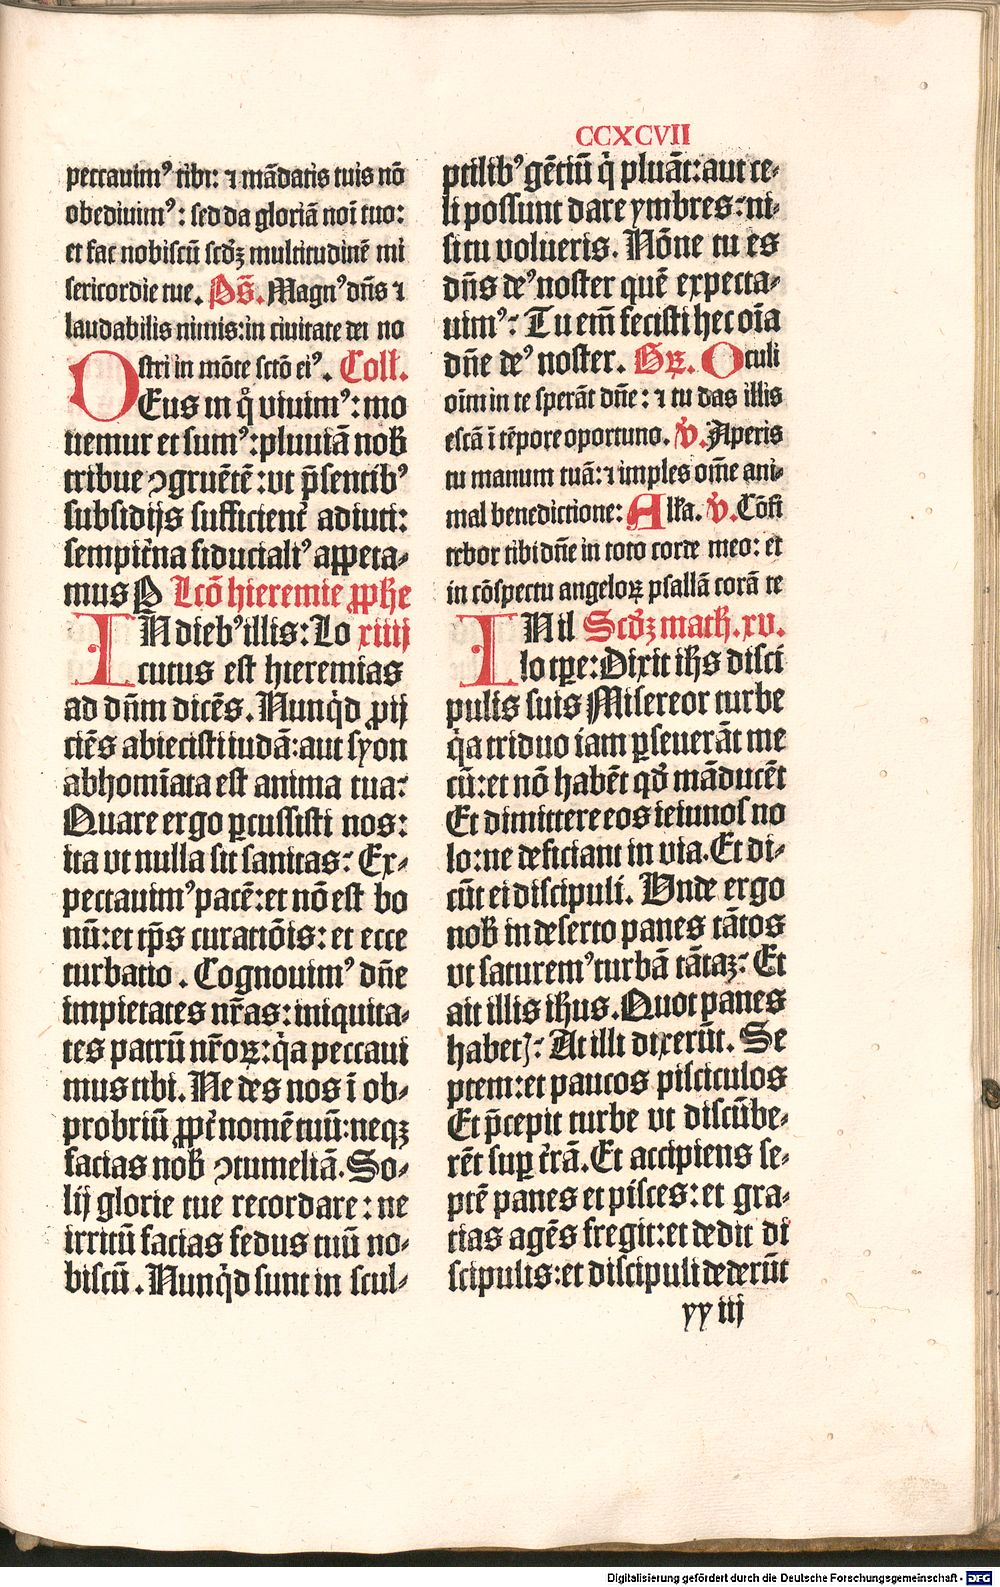 CCXCVII
peccauimꝰ tibi: ⁊ mādatis tuis nō
obediuimꝰ: sed da gloriā noī tuo:
et fac nobiscū scd̄ꝫ multitudinē mi
sericordie tue. Ps̄. Magnꝰ dn̄s ⁊
laudabilis nimis: in ciuitate dei no
stri in mōte sctō eiꝰ. Coll.
DEus in q̊ viuimꝰ: mo
uemur et sumꝰ: pluuiā nob̄
tribue ꝯgruētē: vt p̄sentibꝰ
subsidijs sufficient̄ adiuti:
sempit̄na fiducialiꝰ appeta⸗
mus P Lcō hieremie ꝓph̄e
IN diebꝰ illis: Lo xiiij
cutus est hieremias
ad dn̄m dicēs. Nunqd̄ ꝓij
ciēs abiecisti iudā: aut syon
abhomīata est anima tua?
Quare ergo ꝑcussisti nos:
ita vt nulla sit sanitas? Ex⸗
pectauimꝰ pacē: et nō est bo
nū: et tp̄s curatiōis: et ecce
turbatio. Cognouimꝰ dn̄e
impietates nr̄as: iniquita⸗
tes patrū nr̄oꝝ: q̄a peccaui
mus tibi. Ne des nos ī ob⸗
probriū ꝓpt̄ nomē tuū: neqꝫ
facias nob̄ ꝯtumeliā. So⸗
lij glorie tue recordare: ne
irritū facias fedus tuū no⸗
biscū. Nunqd̄ sunt in scul⸗
ptilibꝰ gētiū q̄ pluāt: aut ce⸗
li possunt dare ymbres: ni⸗
si tu volueris. Nōne tu es
dn̄s deꝰ noster quē expecta⸗
uimꝰ? Tu em̄ fecisti hec oīa
dn̄e deꝰ noster. Gꝝ. Oculi
oīm in te sperāt dn̄e: ⁊ tu das illis
escā ī tēpore oportuno. v̄. Aperis
tu manum tuā: ⁊ imples om̄e ani⸗
mal benedictione: Alła. v̄. Cōfi
tebor tibi dn̄e in toto corde meo: et
in cōspectu angeloꝝ psallā corā te
IN il Scd̄ꝫ math̄. xv.
lo tp̄e: Dixit ih̄s disci
pulis suis Misereor turbe
q̄a triduo iam ꝑseuerāt me
cū: et nō habēt qd̄ māducēt
Et dimittere eos ieiunos no
lo: ne deficiant in via. Et di⸗
cūt ei discipuli. Vnde ergo
nob̄ in deserto panes tātos
vt saturemꝰ turbā tātaꝫ? Et
ait illis ih̄us. Quot panes
habetꝭ? At illi dixerūt. Se
ptem: et paucos pisciculos
Et p̄cepit turbe vt discūbe⸗
rēt suꝑ t̄rā. Et accipiens se⸗
ptē panes et pisces: et gra⸗
tias agēs fregit: et dedit di
scipulis: et discipuli dederūt
yy iij
Digitalisierung gefördert durch die Deutsche Forschungsgemeinschaft - DFG